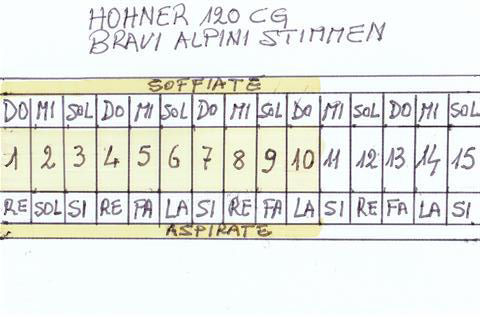 HOHNER 120 CG
BRAVI ALPINI STIMMEN
SOFFIATE
DO MI SOL DO MI SOL DO MI SOL DO MI SOL DO MI SOL
1 2 3 4 5 6 7 8 9 10 11 12 13 14 15
RE SOL SI RE FA LA SI RE FA LA SI RE FA LA SI
ASPIRATE